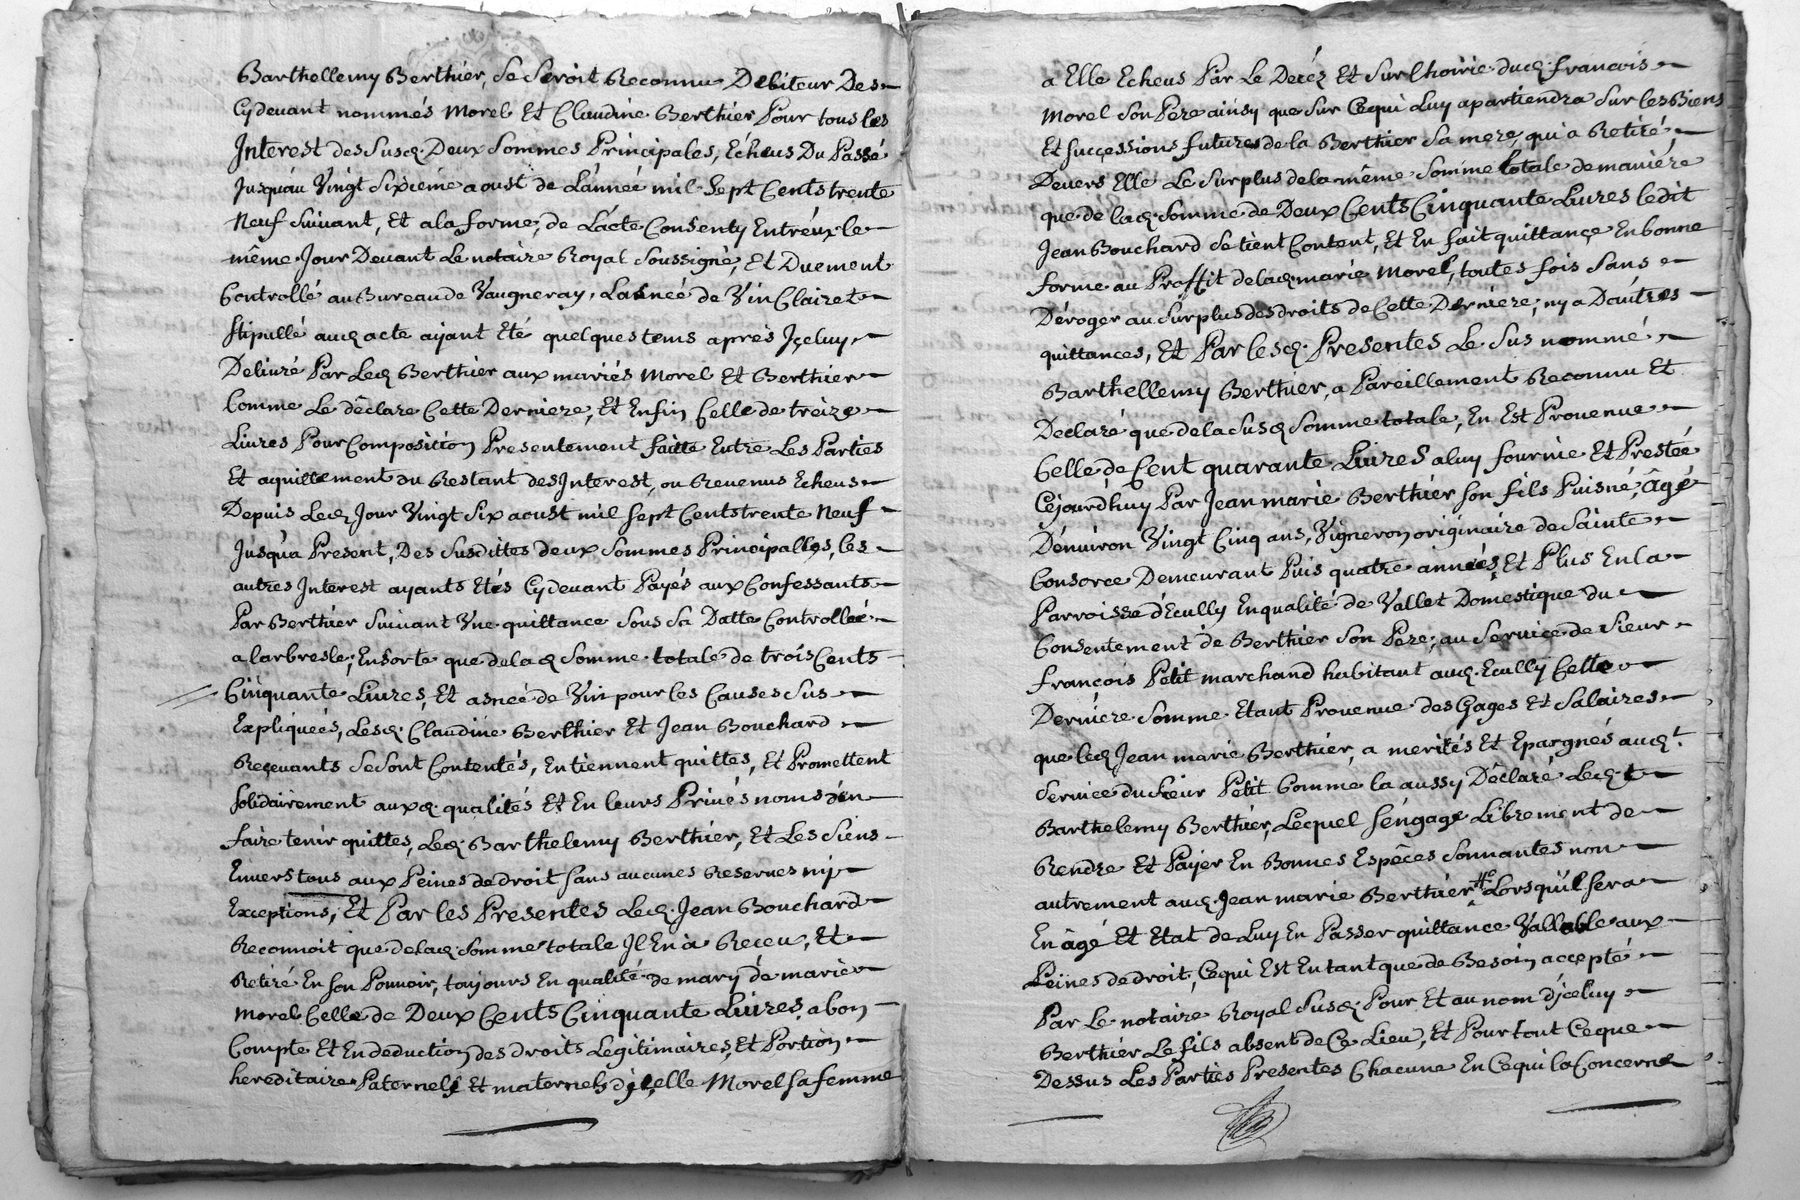 Barthellemy Berthier, Se Seroit Reconnu Debiteur Des
Cydevant nommés Morel Et Claudine Berthier Pour tous les
Interest des Susd. Deux Sommes Principales, Echeus Du Passé
Jusquau Vingt Sixieme aoust de L'année mil Sept Cents trente
Neuf Suivant, Et a la forme, de L'acte Consenty Entr'eux le
même Jour Devant Le notaire Royal Soussigné, Et Duement
Controllé au Bureau de Vaugneray, L'asnée de Vin Clairet
Stipullé aud. acte ayant Eté quelques tems aprés Jceluy
Delivré Par Led. Berthier aux mariés Morel Et Berthier
Comme Le déclare Cette Derniere, Et Enfin Celle de treize
Livres Pour Composition Presentement faitte Entre Les Parties
Et aquittement du Restant des Interest, ou Revenus Echeus
Depuis Led. Jour Vingt Six aoust mil Sept Cents trente Neuf
Jusqu'a Present, Des Susdittes deux Sommes Principalles, les
autres Interest ayants Etés Cydevant Payés aux Confessants
Par Berthier Suivant Vne quittance Sous Sa Datte Controllée
a Larbresle; En Sorte que de lad. Somme totale de trois Cents
Cinquante Livres, Et asnée de Vin pour les Causes Sus
Expliquées, Lesd. Claudine Berthier Et Jean Bouchard
Reçevants Se Sont Contentés, En tiennent quittes, Et Promettent
Solidairement auxd. qualités Et En leurs Privés noms d'en
faire tenir quittes, Led. Barthelemy Berthier, Et Les Siens
Envers tous aux Peines de droit Sans aucunes Reserves ny
Exceptions, Et Par les Presentes Led. Jean Bouchard
Reconnoit que de lad. Somme totale Jl En à Receu, Et
Retiré En Son Pouvoir, toujours En qualité de mary de marie
Morel Celle de Deux Cents Cinquante Livres, a bon
Compte Et En deduction des droits Legitimaires, Et Portion
hereditaire Paternels Et maternels d'jcelle Morel Sa femme
a Elle Echeus Par Le Decéz Et Sur l'hoirie dud. francois
Morel Son Pere ainsy que Sur Cequi Luy apartiendra Sur les Biens
Et Successions futures de la Berthier Sa mere, qui a Retiré
Devers Elle Le Surplus de la même Somme totale de maniére
que de lad. Somme de Deux Cents Cinquante Livres ledit
Jean Bouchard Se tient Content, Et En fait quittançe En bonne
forme au Proffit de lad. marie Morel, toutes fois Sans
Déroger au Surplus des droits de Cette Derniere; ny a D'autres
quittances, Et Par les d. Presentes Le Sus nommé
Barthellemy Berthier, a Pareillement Reconnu Et
Declaré que de la Susd. Somme totale, En Est Provenue
Celle de Cent quarante Livres a luy fournie Et Prestée
Cejourd'huy Par Jean marie Berthier Son fils Puisné, âgé
D'environ Vingt Cinq ans, Vigneron originaire de Sainte
Consorce Demeurant Puis quatre années Et Plus En la
Parroisse d'Ecully En qualité de Vallet Domestique du
Consentement de Berthier Son Pere, au Service de Sieur
françois Petit marchand habitant aud. Ecully Cette
Derniere Somme Etant Provenue des Gages Et Salaires
que led. Jean marie Berthier, a merités Et Epargnés aud.t
Service du Sieur Petit Comme la aussy Déclaré Led. t
Barthelemy Berthier, Lequel S'engage Librement de
Rendre Et Payer En Bonnes Espêces Sonnantes non
autrement aud. Jean marie Berthier Lorsqu'il Sera
En âgé Et Etat de Luy En Passer quittance Vallable aux
Peines de droit, Cequi Est En tant que de Besoin accepté
Par Le notaire Royal Susd. Pour Et au nom d'jceluy
Berthier Le fils absent de Ce Lieu, Et Pour tout Ceque
Dessus Les Parties Presentes Chacune En Cequi la Concerne